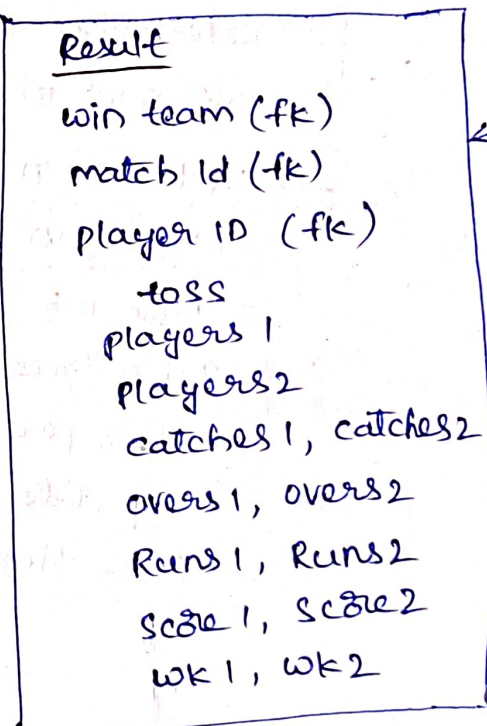 Result
win team (fk)
match Id (fk)
player ID (fk)
toss
players 1
players2
catches 1, catches2
overs 1, overs2
Runs 1, Runs2
Score 1, Score2
wk 1, wk2